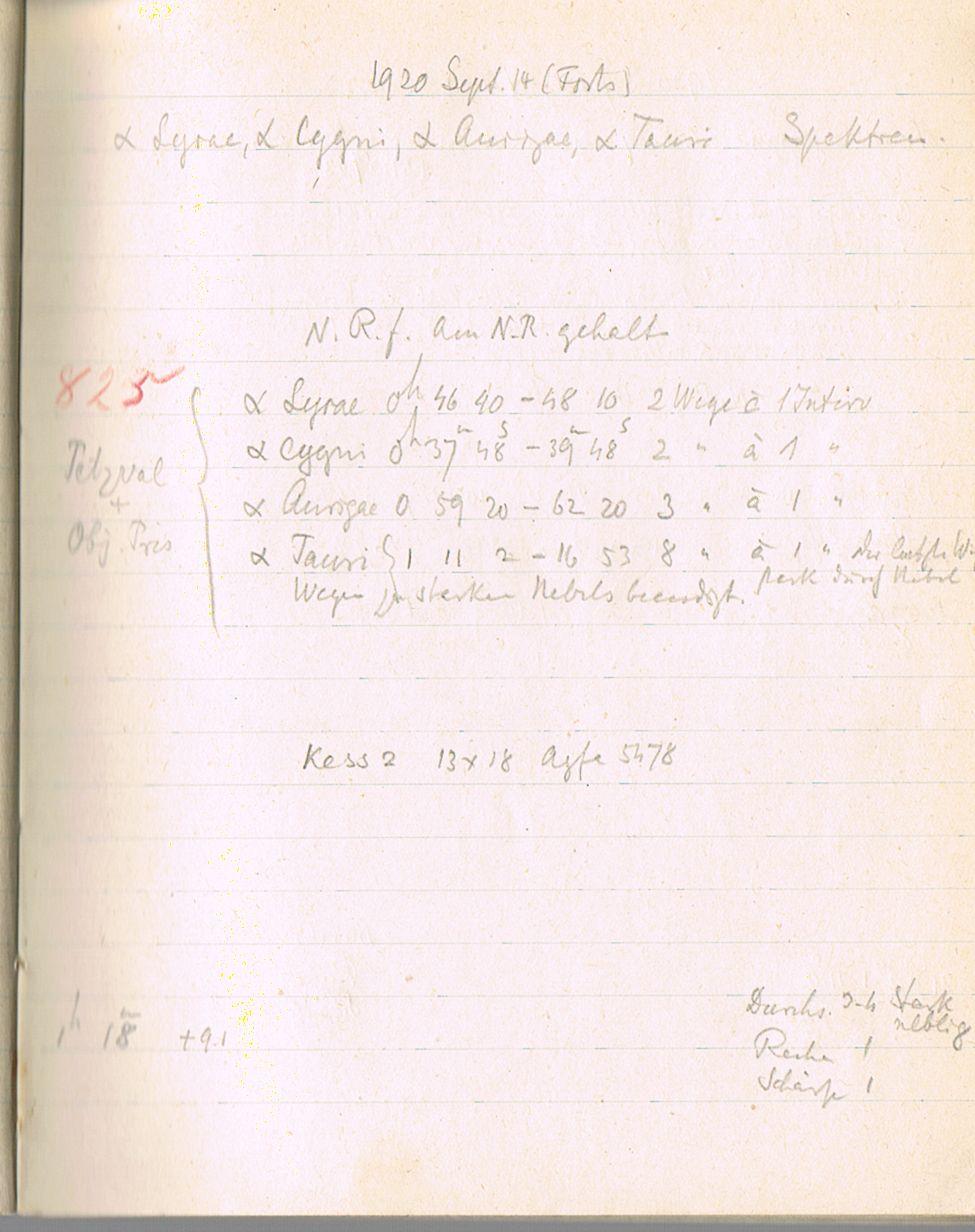 1920 Sept. 14 (Forts)
α Lyrae, α Cygni, α Aurigae, α Tauri Spektren.
N. R. f. am N.R. gehalt
825
Petzval
+
Obj. Pris
α Lyrae 0h 46 40 - 48 10 2 Wege à 1
α Cygni 0h 37m 48s - 39m 48s 2 " à 1 "
α Aurigae 0 59 20 - 62 20 3 " à 1 "
α Tauri 1 11 2 - 16 53 8 " à 1 " die letzte
stark durch Nebel
Wegen zu starken Nebels beendigt.
Kess 2 13x18 Agfa 5478
1h 18m +9.1
Durchs. 3-4 stark
neblig
Ruhe 1
Schärfe 1